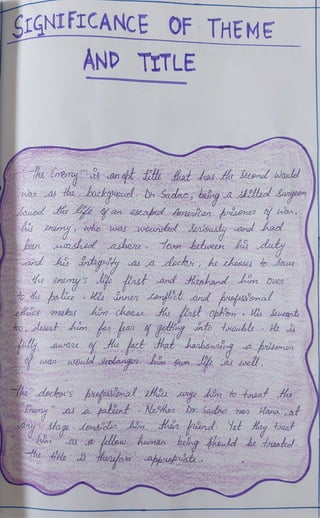 SIGNIFICANCE OF THEME
AND TITLE
"The Enemy" is an apt title that has the second would
war as the background. Dr Sadao, being a skilled surgeon
saved the life of an escaped American prisoner of war,
his enemy, who was wounded seriously and had
been washed ashore. Torn between his duty
and his integrity as a doctor, he chooses to save
the enemy's life first and then hand him over
to the police. His inner conflict and professional
ethics makes him choose the first option. His servants
desert him for fear of getting into trouble. He is
fully aware of the fact that harbouring a prisoner
of war would endanger his own life as well.
The doctor's professional ethics urge him to treat the
"Enemy" as a patient. Neither Dr Sadao nor Hana, at
any stage consider him their friend. Yet they treat
him as a fellow human being should be treated.
The title is therefore appropriate.